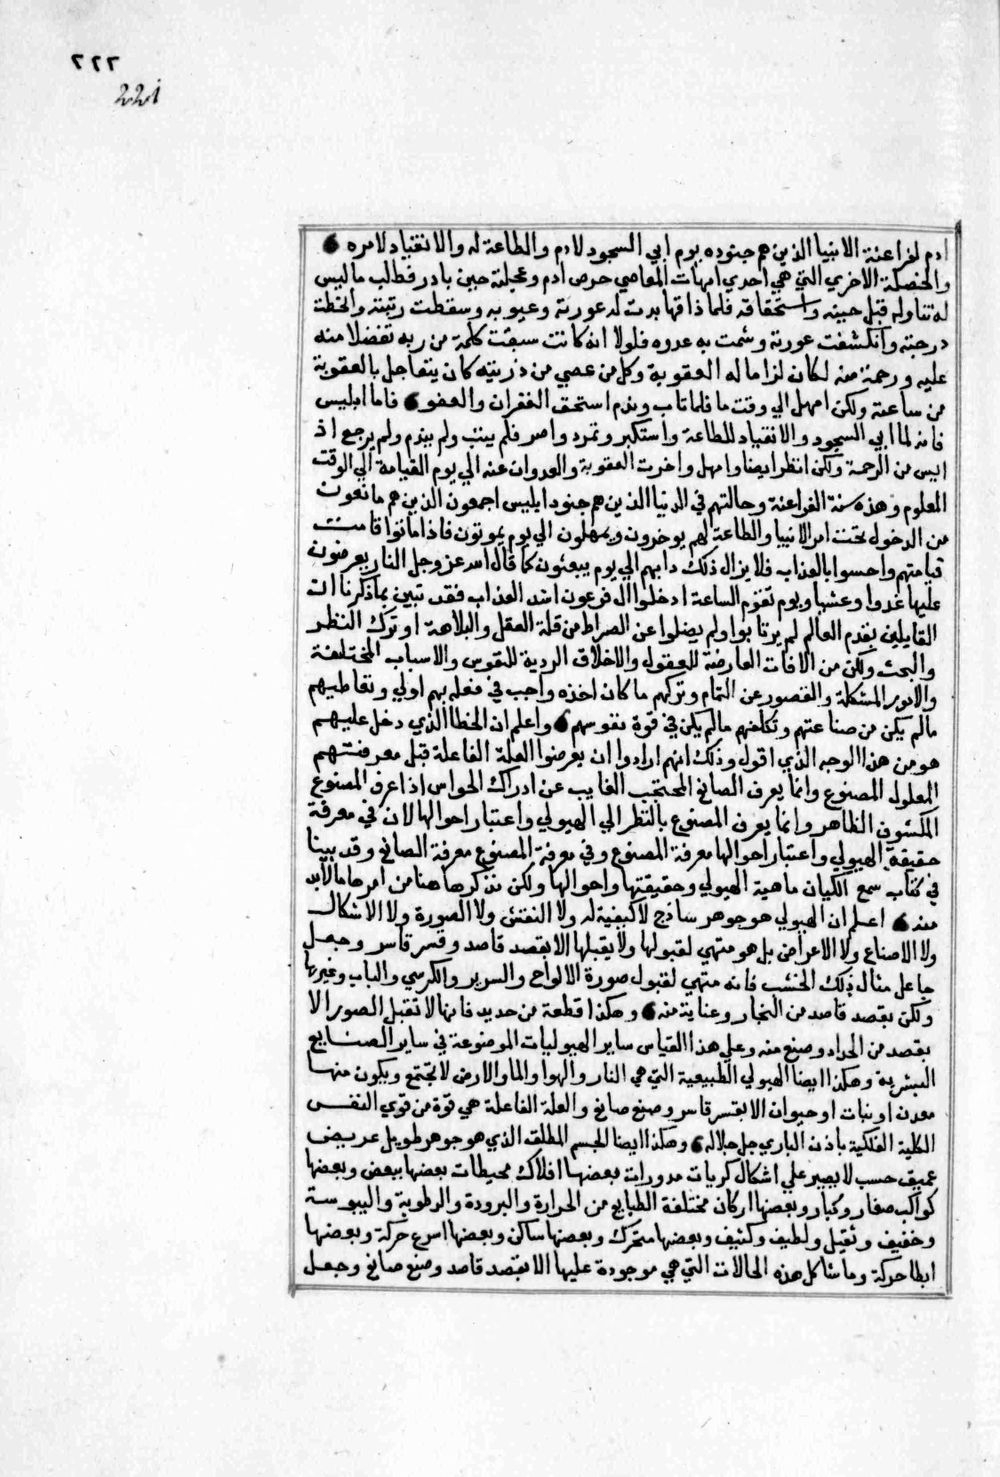 ٢٢٢
221
ادم لفراعنة الانبيا الذين هم جنوده يوم ابي السجود لادم والطاعة له والانقياد لامره
والخصلة الاخري التي هي احدي امهات المعاصي حرص ادم وعجلته حين بادر فطالب ما ليس
له تناوله قبل حينه واستحقاقه فلما ذاقها بدت له عورته وعيوبه وسقطت رتبته وانحطت
درجته وانكشفت عورته وشمت به عدوه فلولا انه كانت سبقت كلمة من ربه تفضلا منه
عليه ورحمة منه لكان لزاما له العقوبة وكل من عصي من ذريته كان يتعاجل بالعقوبة
من ساعته ولكن امهل الي وقت ما فلما تاب وندم استحق الغفران والعفو فاما ابليس
فانه لما ابي السجود والانقياد للطاعة واستكبر وتمرد واصر فلم يتب ولم يندم ولم يرجع اذ
ايس من الرحمة ولكن انظر ايضا وامهل واخرت العقوبة والعدوان عنه الي يوم القيامة الي الوقت
المعلوم وهذه سنة الفراعنة وحالتهم في الدنيا الذين هم جنود ابليس اجمعون الذين هم مانعون
من الدخول تحت امر الانبيا والطاعة لهم يوخرون ويمهلون الي يوم يموتون فاذا ماتوا قامت
قيامتهم واحسوا بالعذاب فلا يزال ذلك دابهم الي يوم يبعثون كما قال الله عز وجل النار يعرضون
عليها غدوا وعشيا ويوم تقوم الساعة ادخلوا ال فرعون اشد العذاب فقد تبين بما ذكرنا ان
القايلين بقدم العالم لم يرتابوا ولم يضلوا عن الصراط من قلة العقل والبلاهة او ترك النظر
والبحث ولكن من الافات العارضة للعقول والاخلاق الردية للنفوس والاسباب المختلفة
والامور المشكلة والقصور عن التمام وتركهم ما كان اخذه واجب في فعله بهم اولي وتعاطيهم
مالم يكن من صناعتهم وتكلفهم مالم يكن في قوة نفوسهم واعلم ان الخطا الذي دخل عليهم
هو من هذا الوجه الذي اقول وذلك انهم ارادوا ان يعرضوا العلة الفاعلة قبل معرفتهم
المعلول المصنوع وانما يعرف الصانع المحتجب الغايب عن ادراك الحواس اذا عرف المصنوع
المكشوف الظاهر وانما يعرف المصنوع بالنظر الي الهيولي واعتبار احوالها لان في معرفة
حقيقة الهيولي واعتبار احوالها معرفة المصنوع وفي معرفة المصنوع معرفة الصانع وقد بينا
في كتاب سمع الكيان ماهية الهيولي وحقيقتها واحوالها ولكن نذكر هاهنا من امرها ما لابد
منه اعلم ان الهيولي هو جوهر ساذج لا كيفية له ولا النقش ولا الصورة ولا الاشكال
ولا الاصناع ولا الاعراض بل هو متهي لقبولها ولا يقبلها الا بقصد قاصد وقسر قاسر وجعل
جاعل مثال ذلك الخشب فانه متهي لقبول صورة الالواح والسرير والكرسي والباب وغيرها
ولكن بقصد قاصد من النجار وعناية منه وهكذا قطعة من حديد فانها لا تقبل الصور الا
بقصد من الحداد وصنع منه وعلي هذا القياس ساير الهيوليات الموضوعة في ساير الصنايع
البشرية وهكذا ايضا الهيولي الطبيعية التي هي النار والهوا والما والارض لا تجتمع ويكون منها
معدن او نبات او حيوان الا بقسر قاسر وصنع صانع والعلة الفاعلة هي قوة من قوي النفس
الكلية الفلكية باذن الباري جل جلاله وهكذا ايضا الجسم المطلق الذي هو جوهر طويل عريض
عميق حسب لا يصير علي اشكال كريات مدورات بعضها افلاك محيطات بعضها ببعض وبعضها
كواكب صغار وكبار وبعضها اركان مختلفة الطبايع من الحرارة والبرودة والرطوبة واليبوسة
وخفيف وثقيل ولطيف وكثيف وبعضها متحرك وبعضها ساكن وبعضها اسرع حركة وبعضها
ابطا حركة وما شاكل هذه الحالات التي هي موجودة عليها الا بقصد قاصد وصنع صانع وجعل